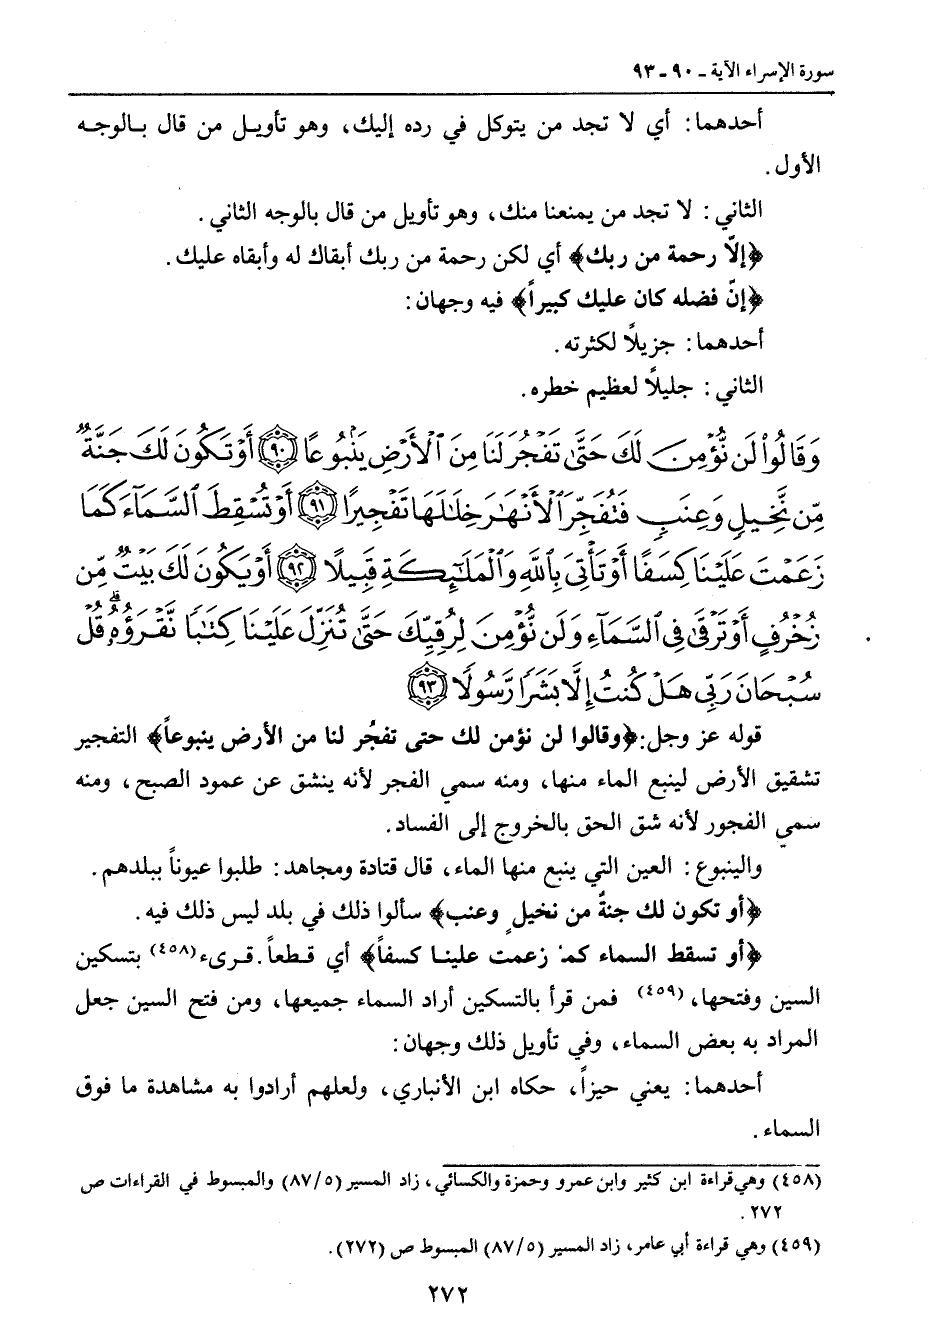 سورة الإسراء الآية ـ ٩٠ ـ ٩٣
أحدهما: أي لا تجد من يتوكل في رده إليك، وهو تأويل من قال بالوجه
الأول.
الثاني: لا تجد من يمنعنا منك، وهو تأويل من قال بالوجه الثاني.
﴿إلّا رحمة من ربك﴾ أي لكن رحمة من ربك أبقاك له وأبقاه عليك.
﴿إنّ فضله كان عليك كبيراً﴾ فيه وجهان:
أحدهما: جزيلاً لكثرته.
الثاني: جليلاً لعظيم خطره.
وَقَالُوا۟ لَن نُّؤْمِنَ لَكَ حَتَّىٰ تَفْجُرَ لَنَا مِنَ ٱلْأَرْضِ يَنۢبُوعًا ﴿٩٠﴾ أَوْ تَكُونَ لَكَ جَنَّةٌ
مِّن نَّخِيلٍ وَعِنَبٍ فَتُفَجِّرَ ٱلْأَنْهَـٰرَ خِلَـٰلَهَا تَفْجِيرًا ﴿٩١﴾ أَوْ تُسْقِطَ ٱلسَّمَآءَ كَمَا
زَعَمْتَ عَلَيْنَا كِسَفًا أَوْ تَأْتِىَ بِٱللَّهِ وَٱلْمَلَـٰٓئِكَةِ قَبِيلًا ﴿٩٢﴾ أَوْ يَكُونَ لَكَ بَيْتٌ مِّن
زُخْرُفٍ أَوْ تَرْقَىٰ فِى ٱلسَّمَآءِ وَلَن نُّؤْمِنَ لِرُقِيِّكَ حَتَّىٰ تُنَزِّلَ عَلَيْنَا كِتَـٰبًا نَّقْرَؤُهُۥ ۗ قُلْ
سُبْحَانَ رَبِّى هَلْ كُنتُ إِلَّا بَشَرًا رَّسُولًا ﴿٩٣﴾
قوله عز وجل: ﴿وقالوا لن نؤمن لك حتى تفجُر لنا من الأرض ينبوعاً﴾ التفجير
تشقيق الأرض لينبع الماء منها، ومنه سمي الفجر لأنه ينشق عن عمود الصبح، ومنه
سمي الفجور لأنه شق الحق بالخروج إلى الفساد.
والينبوع: العين التي ينبع منها الماء، قال قتادة ومجاهد: طلبوا عيوناً ببلدهم.
﴿أو تكون لك جنةٌ من نخيلٍ وعنب﴾ سألوا ذلك في بلد ليس ذلك فيه.
﴿أو تسقط السماء كما زعمت علينا كسفاً﴾ أي قطعاً. قرىء(٤٥٨) بتسكين
السين وفتحها، (٤٥٩) فمن قرأ بالتسكين أراد السماء جميعها، ومن فتح السين جعل
المراد به بعض السماء، وفي تأويل ذلك وجهان:
أحدهما: يعني حيزاً، حكاه ابن الأنباري، ولعلهم أرادوا به مشاهدة ما فوق
السماء.
(٤٥٨) وهي قراءة ابن كثير وابن عمرو وحمزة والكسائي، زاد المسير (٨٧/٥) والمبسوط في القراءات ص
٢٧٢.
(٤٥٩) وهي قراءة أبي عامر، زاد المسير (٨٧/٥) المبسوط ص (٢٧٢).
٢٧٢